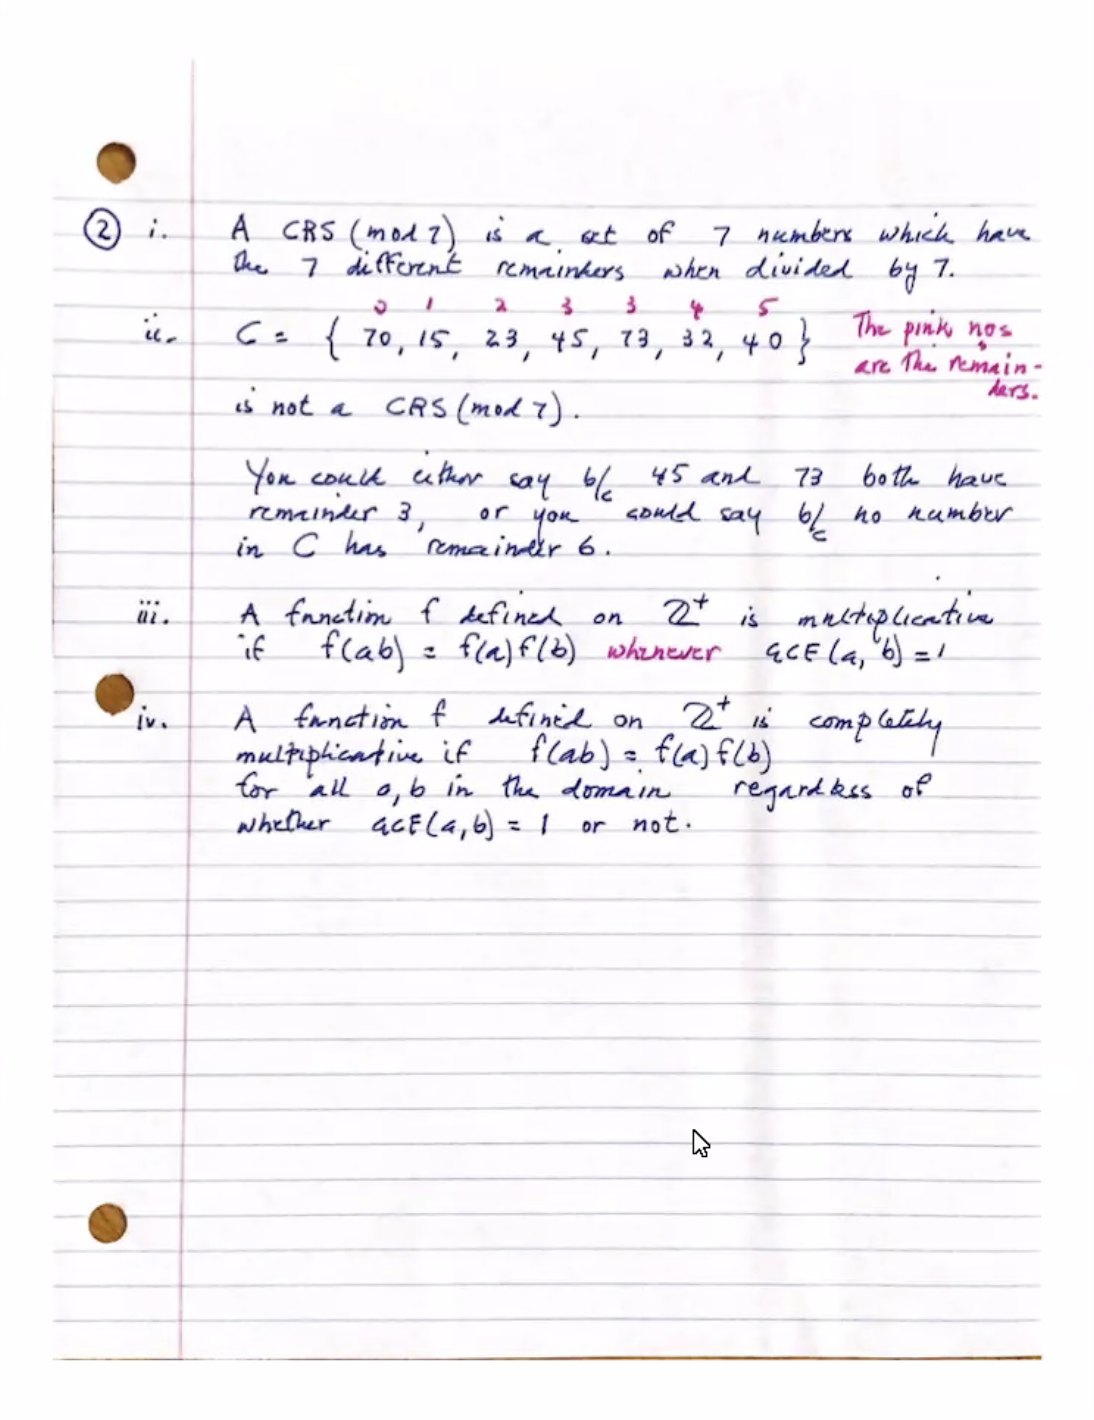 ② i. A CRS (mod 7) is a set of 7 numbers which have
the 7 different remainders when divided by 7.
0 1 2 3 3 4 5
ii. C = { 70, 15, 23, 45, 73, 32, 40 } The pink nos
are the remain-
ders.
is not a CRS (mod 7).
You could either say b/c 45 and 73 both have
remainder 3, or you could say b/c no number
in C has remainder 6.
iii. A function f defined on ℤ⁺ is multiplicative
if f(ab) = f(a)f(b) whenever GCF(a, b) = 1
iv. A function f defined on ℤ⁺ is completely
multiplicative if f(ab) = f(a)f(b)
for all a, b in the domain regardless of
whether GCF(a, b) = 1 or not.